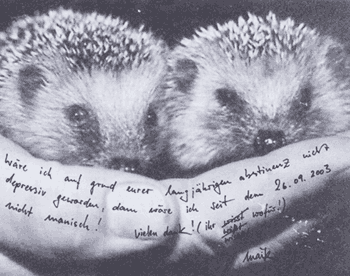 wäre ich auf grund eurer langjährigen abstinenz nicht
depressiv geworden, dann wäre ich seit dem 26.09.2003
nicht manisch! vielen dank! (ihr wisst wofür!)